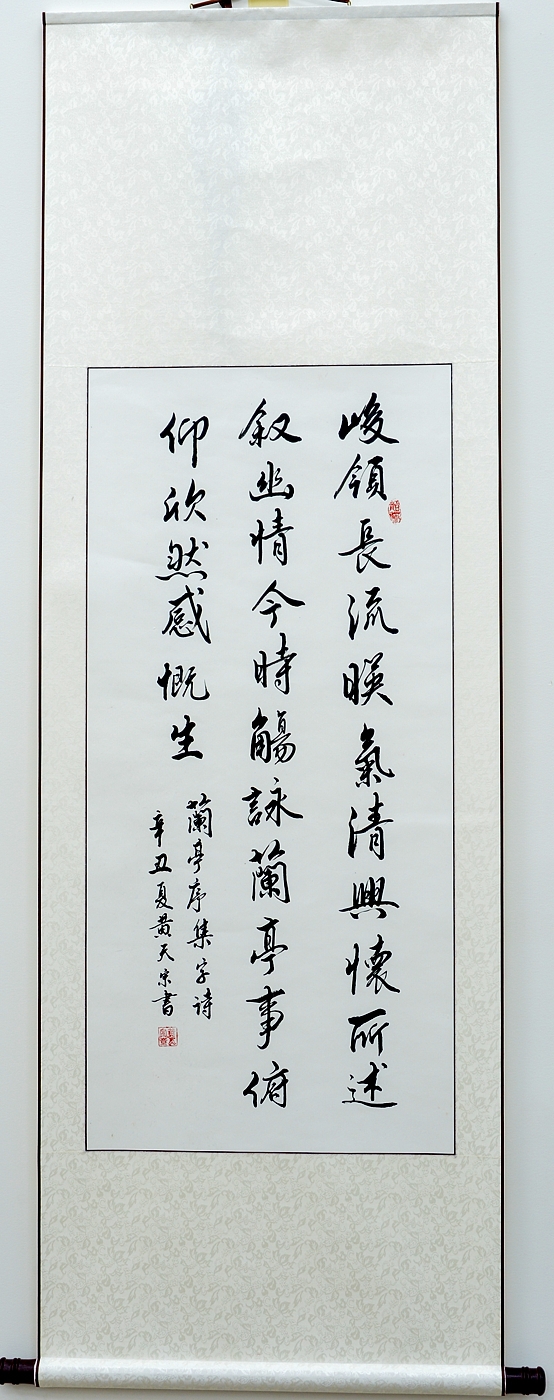 峻領長流暎氣清興懷所述
叙幽情今時觴詠蘭亭事俯
仰欣然感慨生
蘭亭序集字詩
辛丑夏黄天宗書